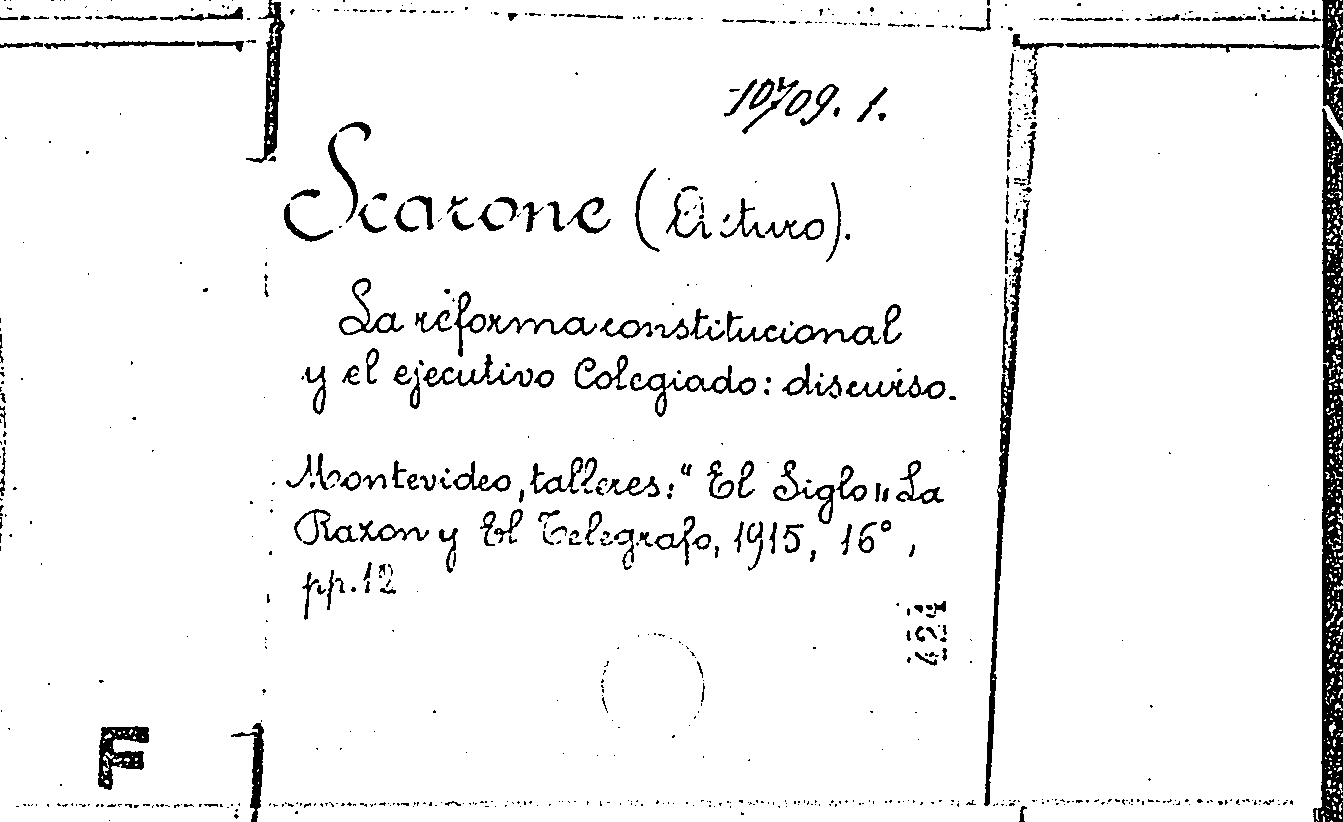 10709. 1.
Scarone (Arturo).
La reforma constitucional
y el ejecutivo Colegiado: discurso.
Montevideo, talleres: "El Siglo" La
Razon y El Telegrafo, 1915, 16°,
pp. 12
424
F